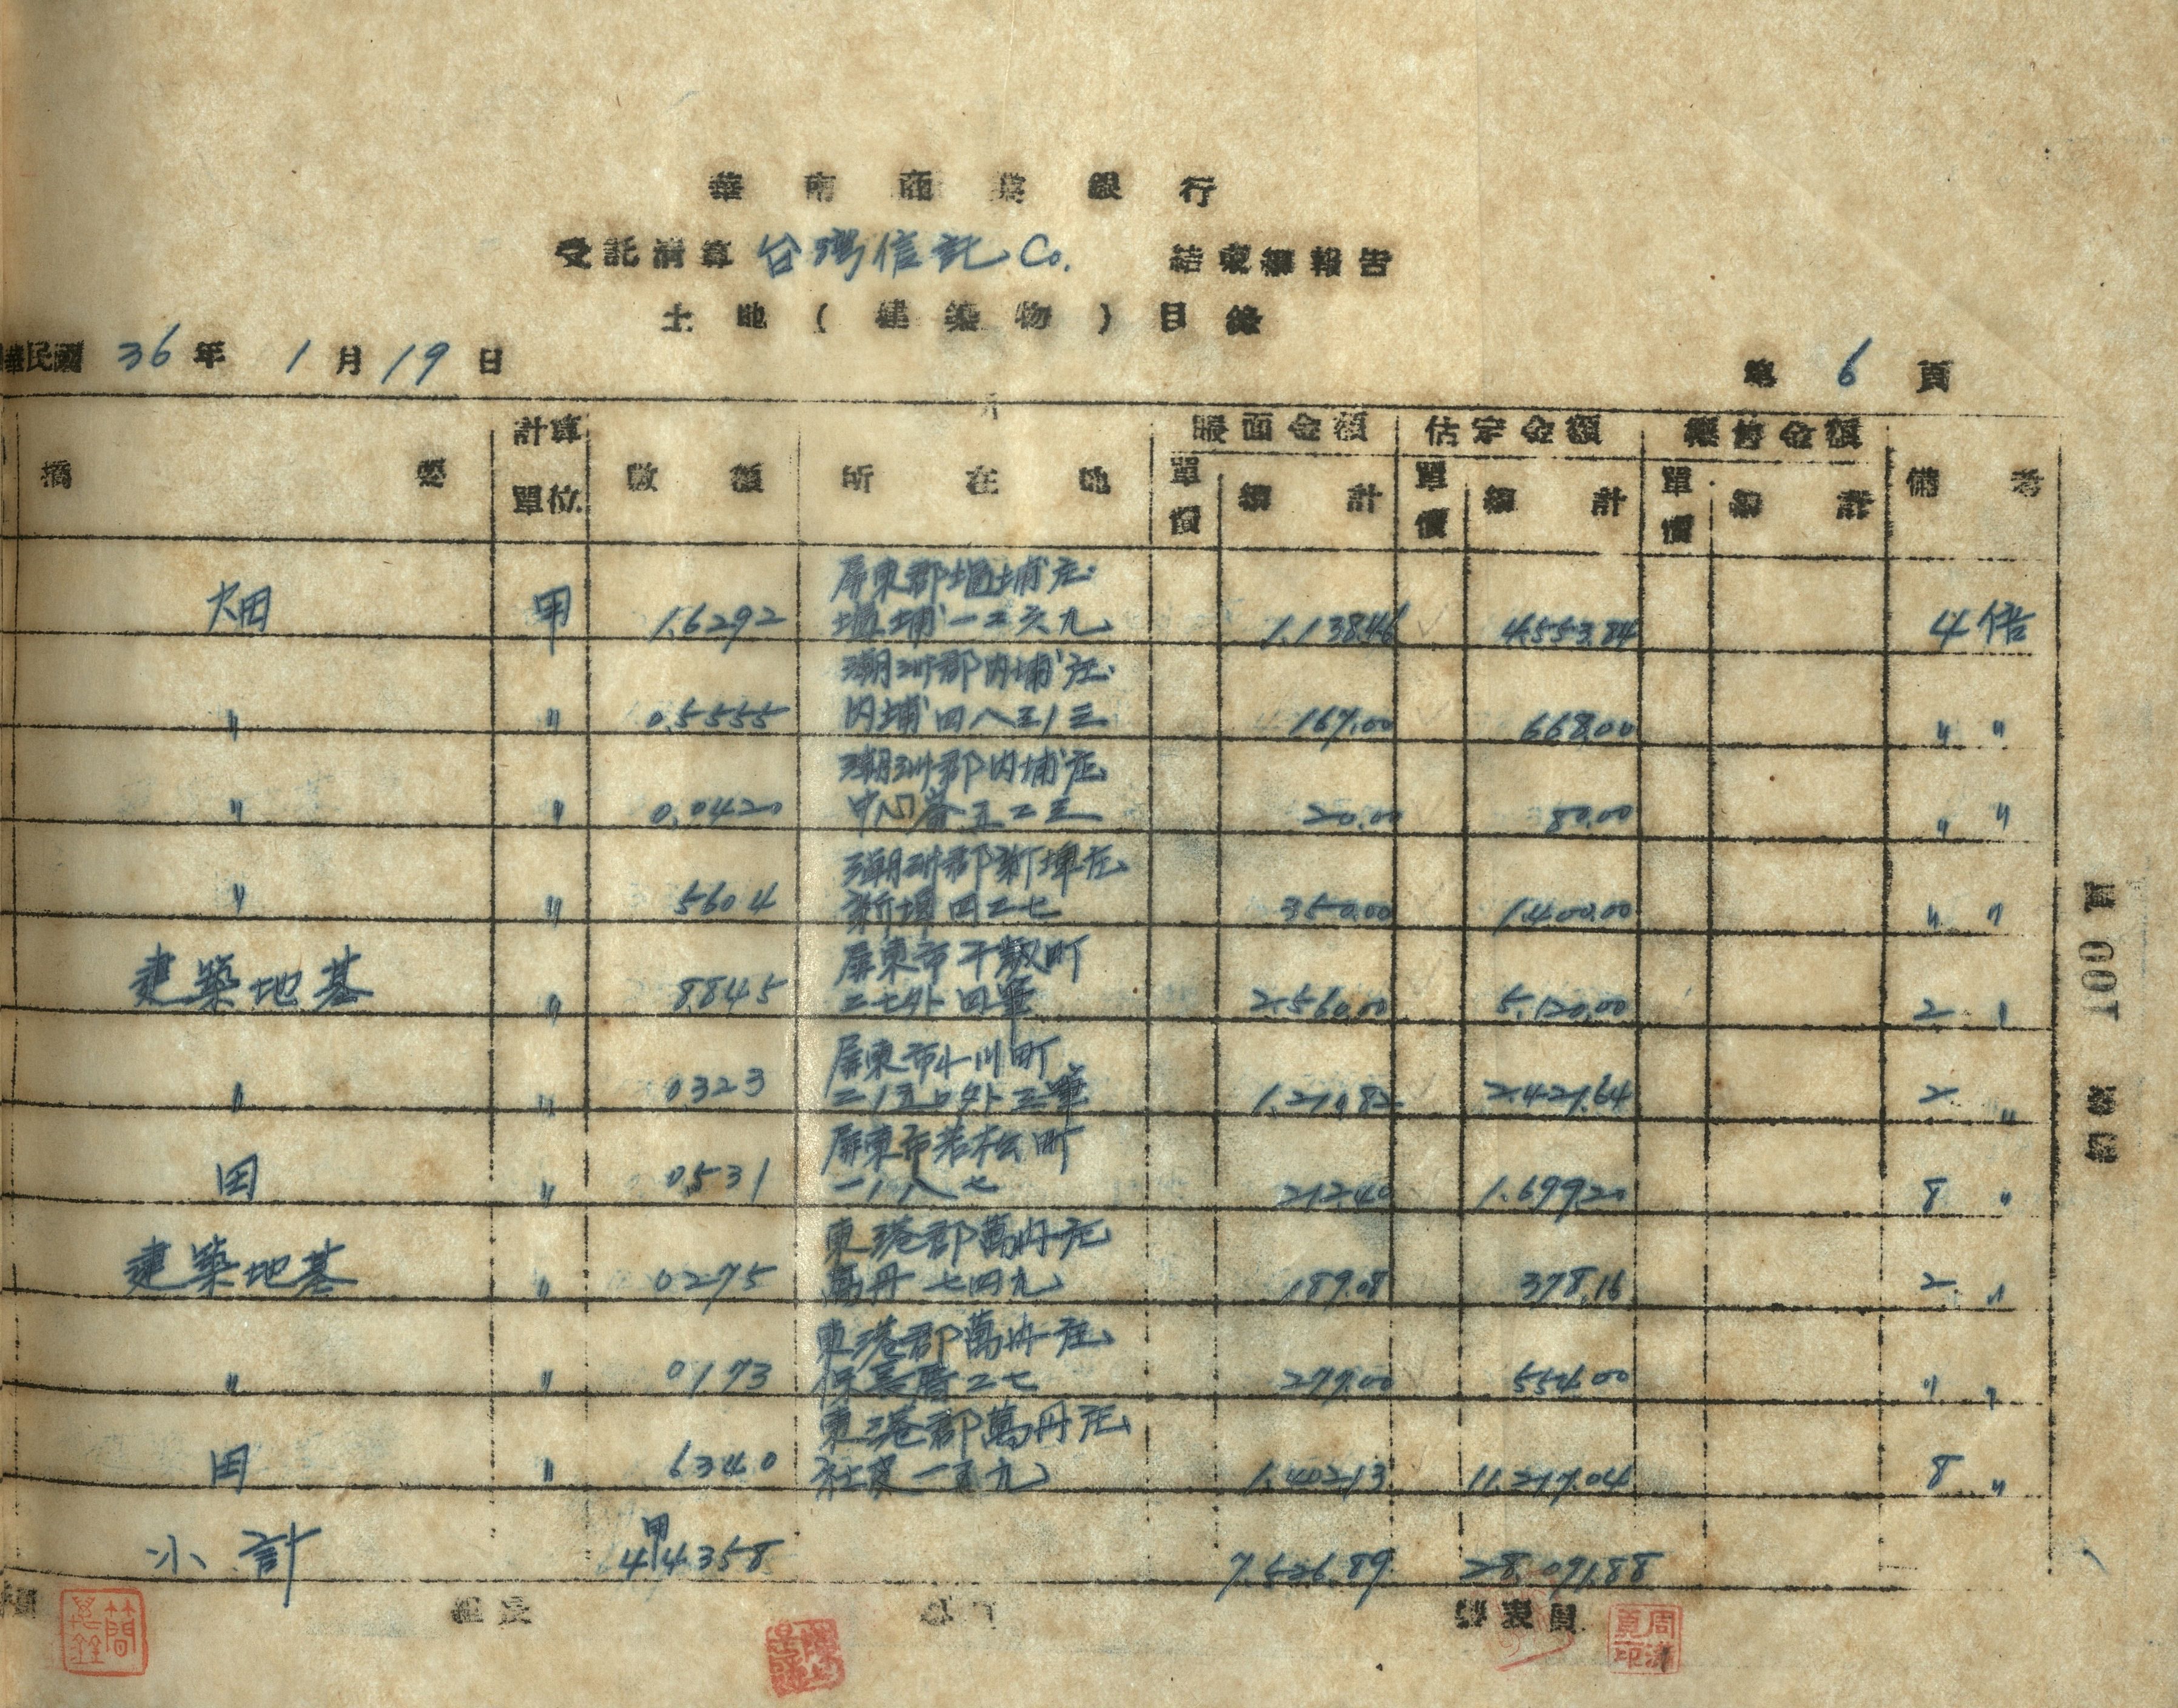 華南商業銀行
受託清算台灣信託Co. 結束總報告
土地(建築物)目錄
華民國 36 年 1 月 19 日 第 6 頁
摘要 計算單位 數額 所在地 賬面金額 單價 總計 估定金額 單價 總計 單價 總計 備考
畑 甲 1.6292 屏東郡塩埔庄 1.138.46 4.553.84 4倍
塩埔一二六九
〃 〃 0.5555 潮洲郡內埔庄 167.00 668.00 〃 〃
內埔四八五ノ三
〃 〃 0.0420 潮洲郡內埔庄 20.00 80.00 〃 〃
五二三
〃 〃 5604 潮洲郡新埤庄 350.00 1.400.00 〃 〃
新埤四二七
建築地基 〃 8845 屏東市千歲町 2.560.00 5.120.00 2 〃
二七外四筆
〃 〃 0323 屏東市小川町 1.210.82 2.421.64 2 〃
外三筆
田 〃 0.531 屏東市若松町 212.40 1.699.20 8 〃
一ノ八七
建築地基 〃 0275 東港郡萬丹庄 189.08 378.16 2 〃
萬丹七四九
〃 〃 0173 東港郡萬丹庄 277.00 554.00 〃 〃
保長厝二七
田 〃 6340 東港郡萬丹庄 1.402.13 11.217.04 8 〃
社皮一五九
小計 甲 4.4358 7.526.89 28.091.88
組長 製表員
簡
周
頁 001 號